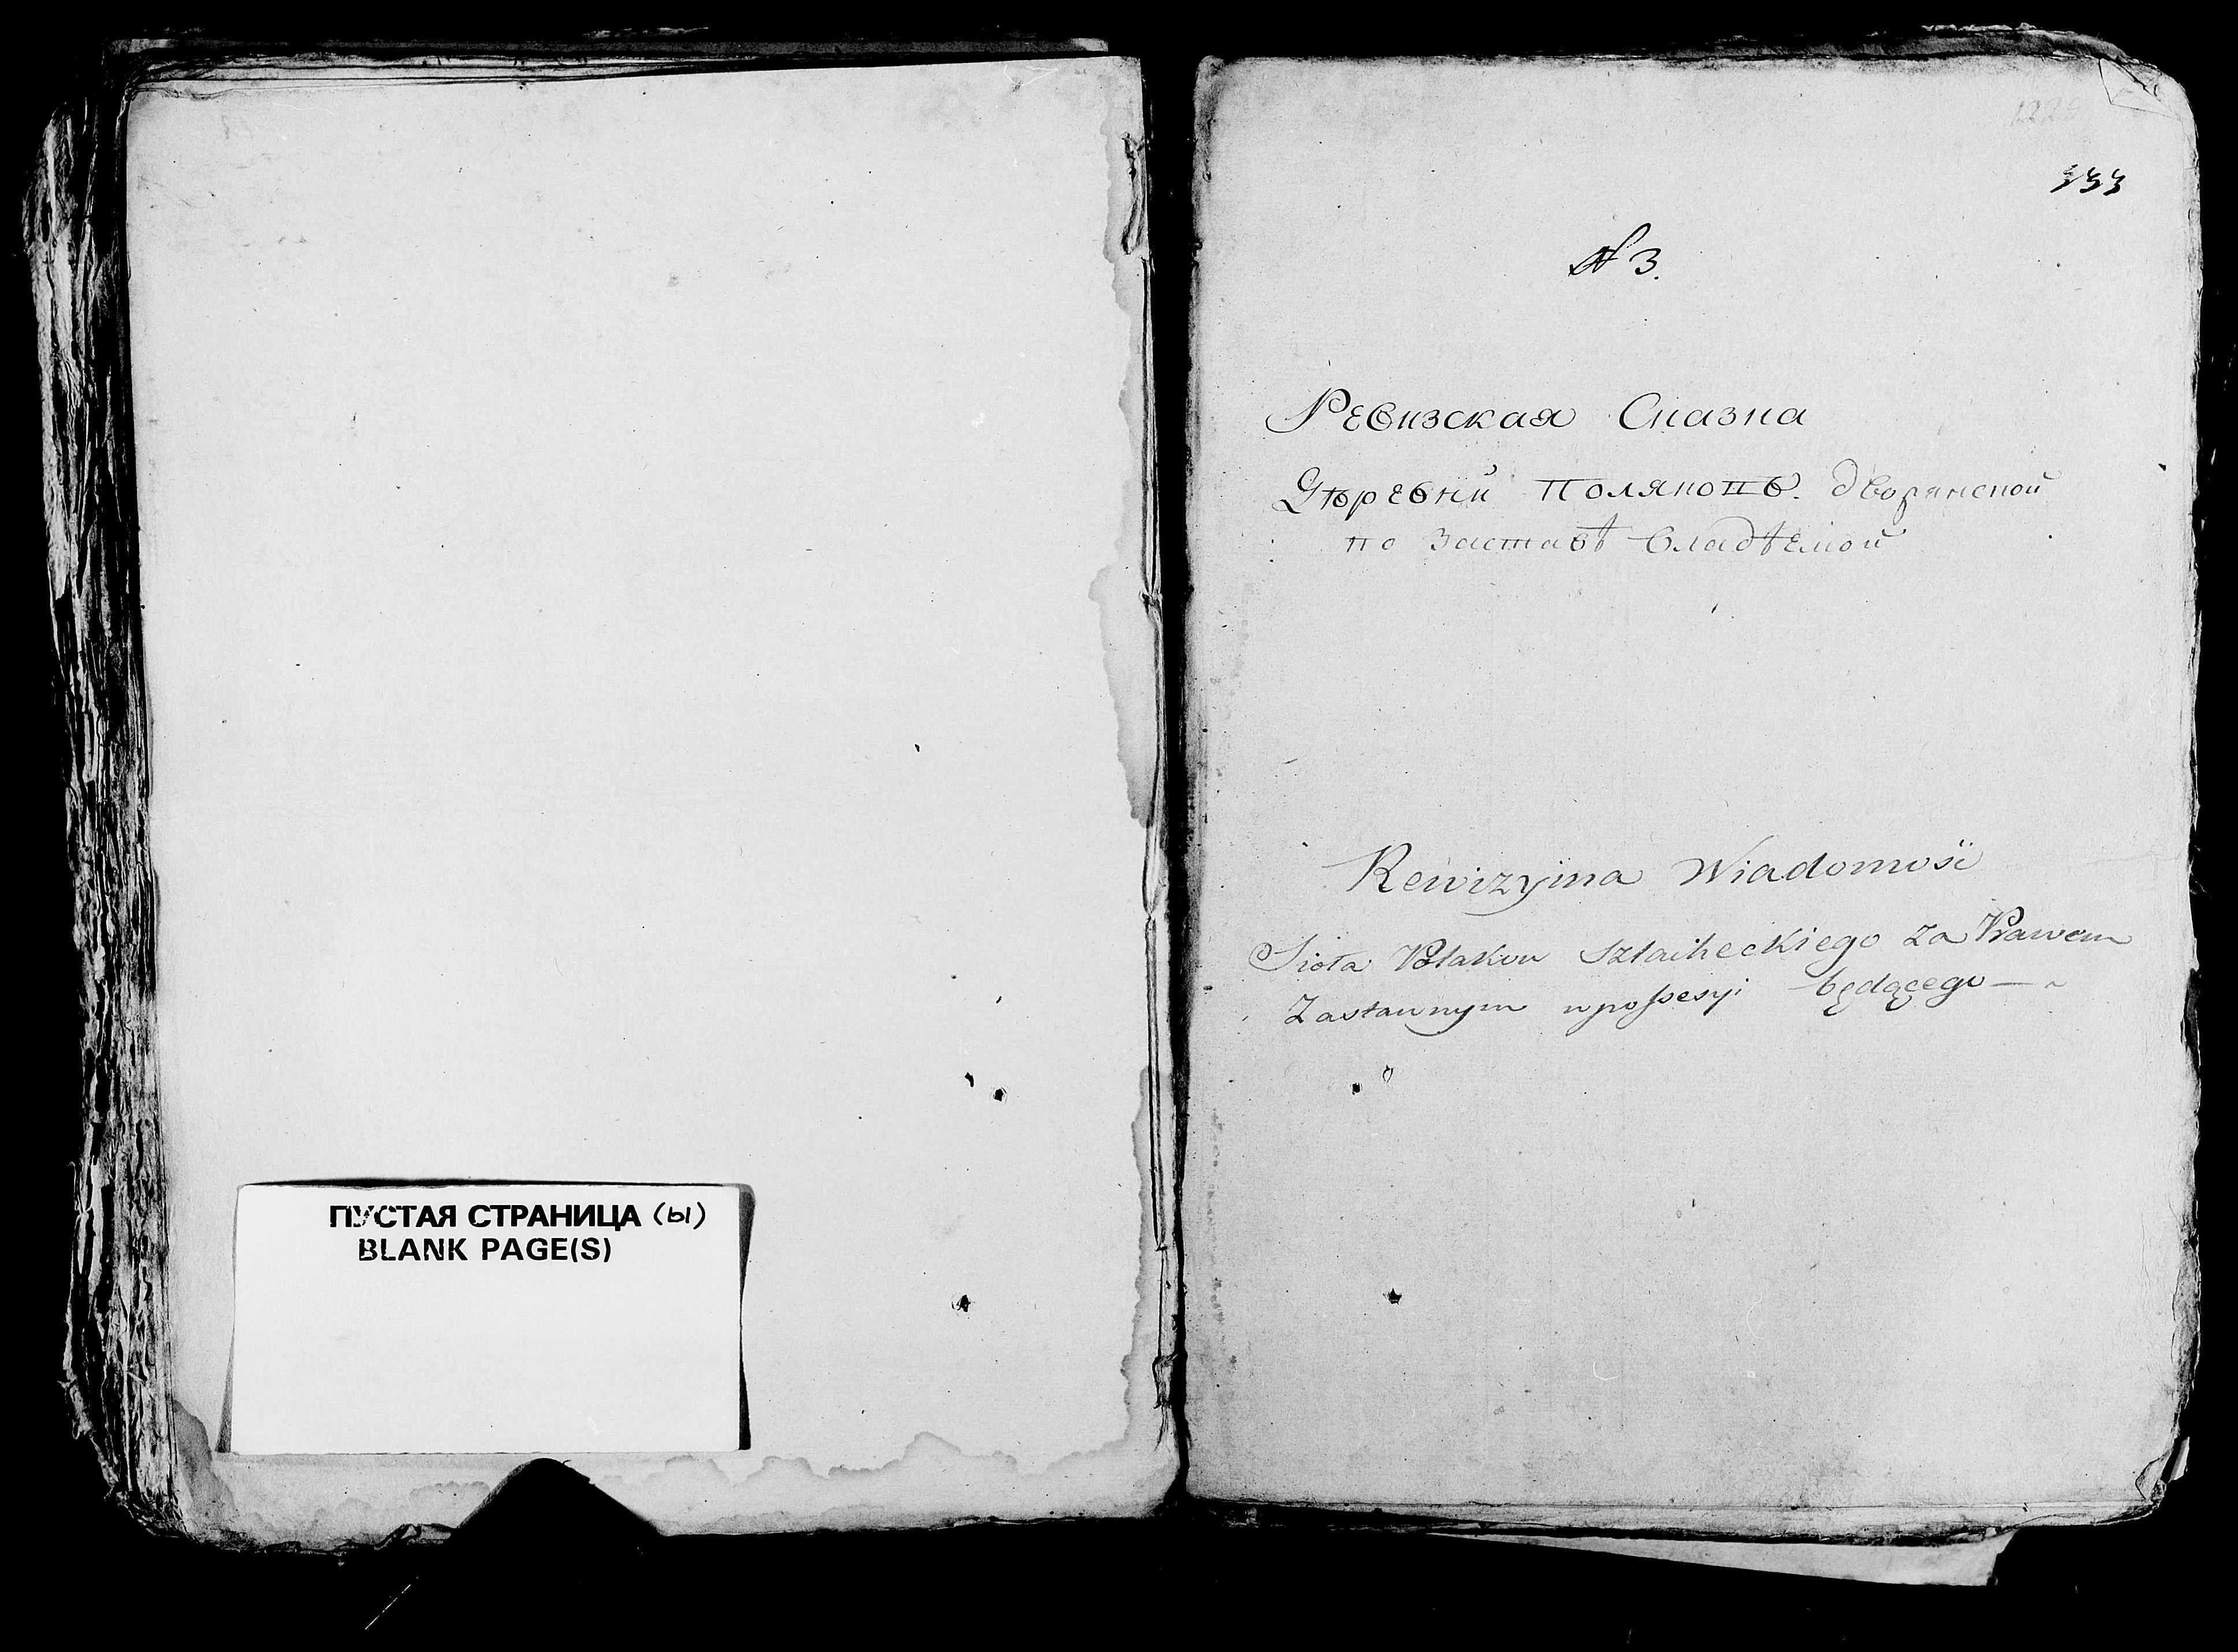 ПУСТАЯ СТРАНИЦА (ы)
BLANK PAGE(S)
333
№ 3.
Ревизская Сказка
Дѣревни Поляковъ. дворянской
по Заставѣ владѣемой
Rewizyina Wiadomość
Sioła Polakow Szlacheckiego za Prawem
Zastawnym w possesyi będącego